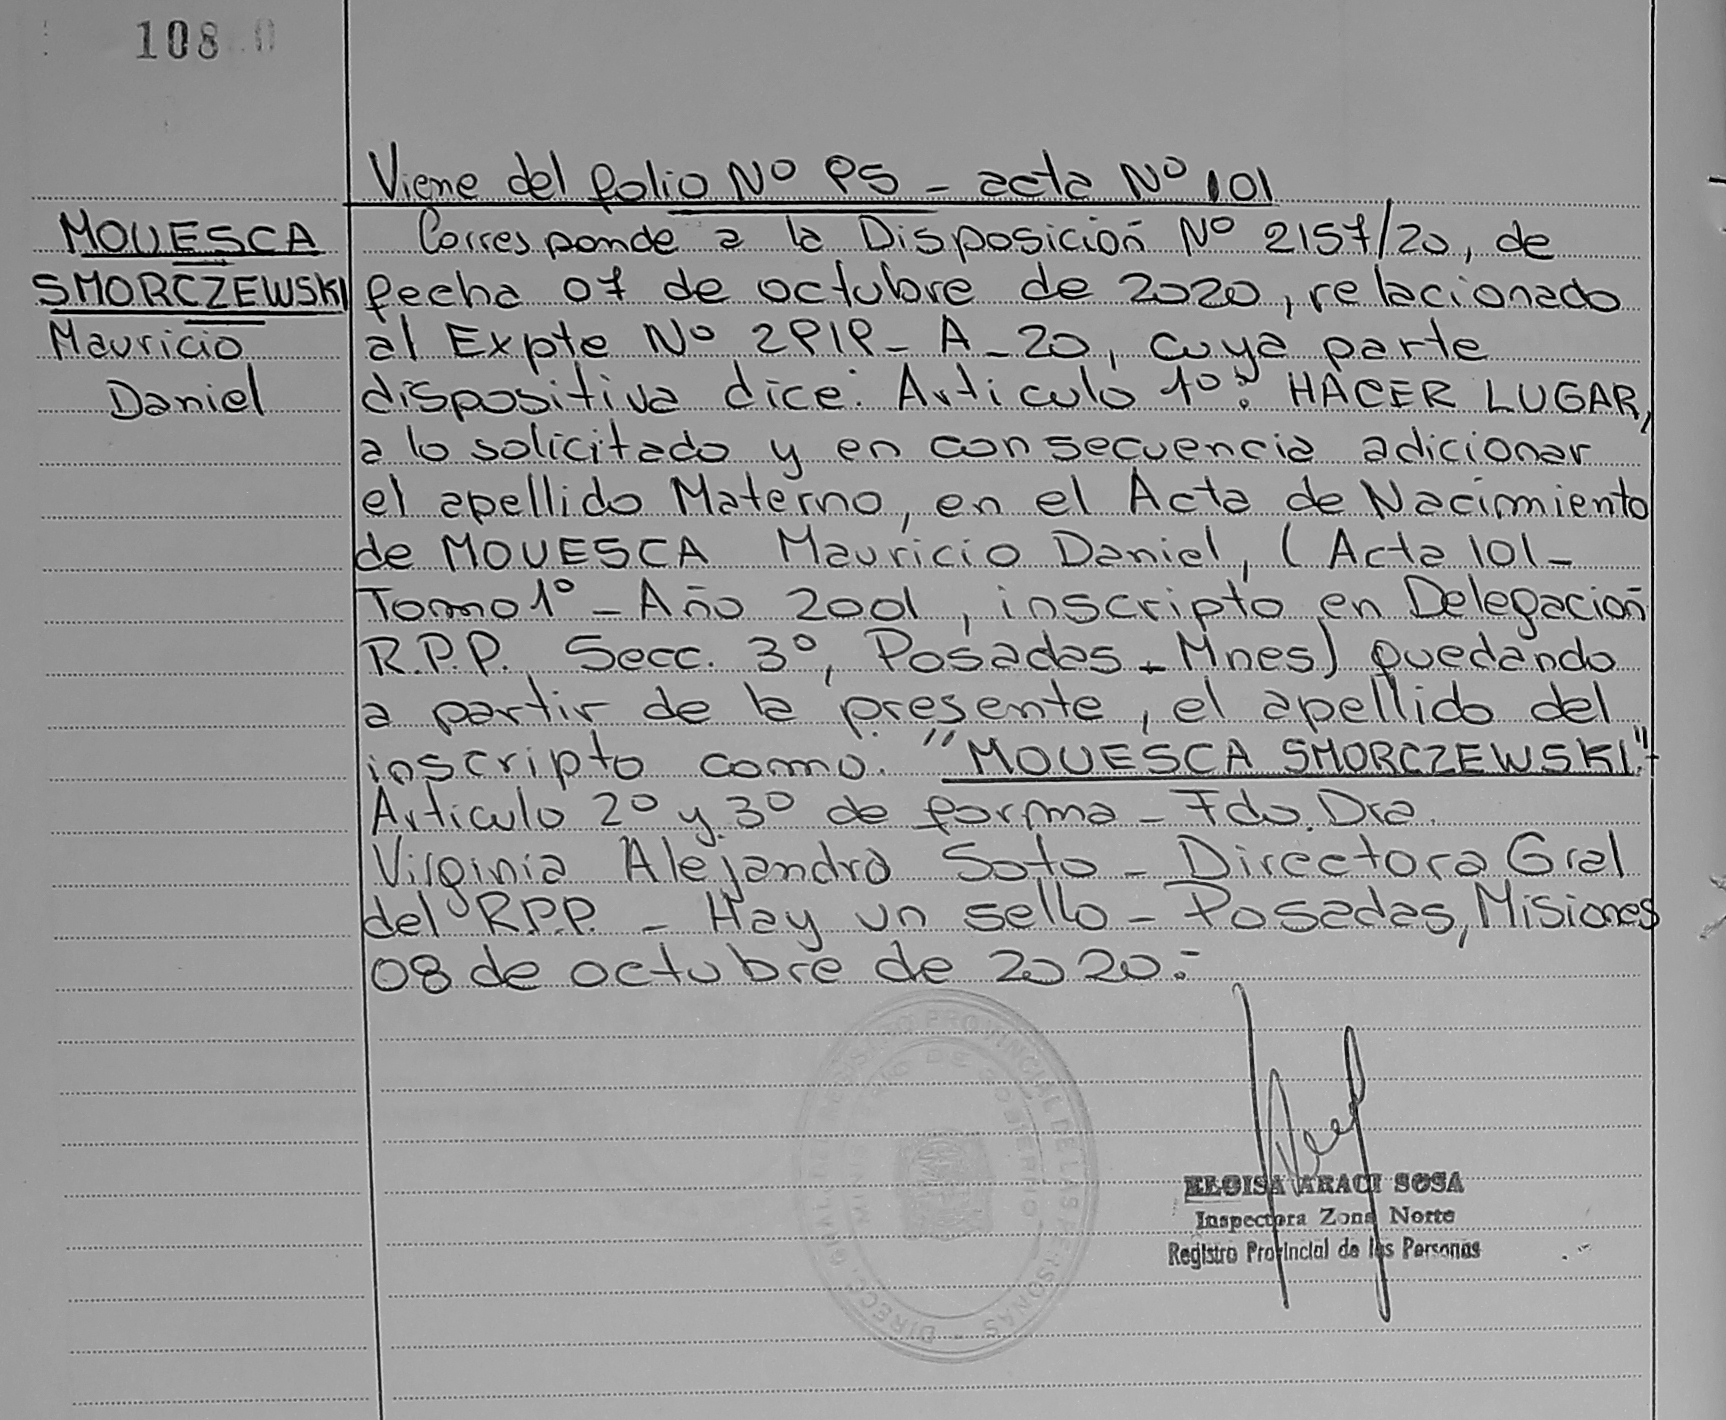 108
MOUESCA
SMORCZEWSKI
Mauricio
Daniel
Viene del folio Nº 95 - acta Nº 101
Corresponde a la Disposición Nº 2157/20, de
fecha 07 de octubre de 2020, relacionado
al Expte Nº 2919-A-20, cuya parte
dispositiva dice: Articulo 1º: HACER LUGAR,
a lo solicitado y en consecuencia adicionar
el apellido Materno, en el Acta de Nacimiento
de MOUESCA Mauricio Daniel, (Acta 101-
Tomo 1º - Año 2001, inscripto en Delegación
R.P.P. Secc. 3º, Posadas - Mnes) quedando
a partir de la presente, el apellido del
inscripto como: "MOUESCA SMORCZEWSKI".
Articulo 2º y 3º de forma - Fdo. Dra.
Virginia Alejandra Soto - Directora Gral
del R.P.P. - Hay un sello - Posadas, Misiones
08 de octubre de 2020.-
DIRECC. GRAL. DEL REGISTRO PROVINCIAL DE LAS PERSONAS -
MINISTERIO DE GOBIERNO
ELOISA ARACI SOSA
Inspectora Zona Norte
Registro Provincial de las Personas